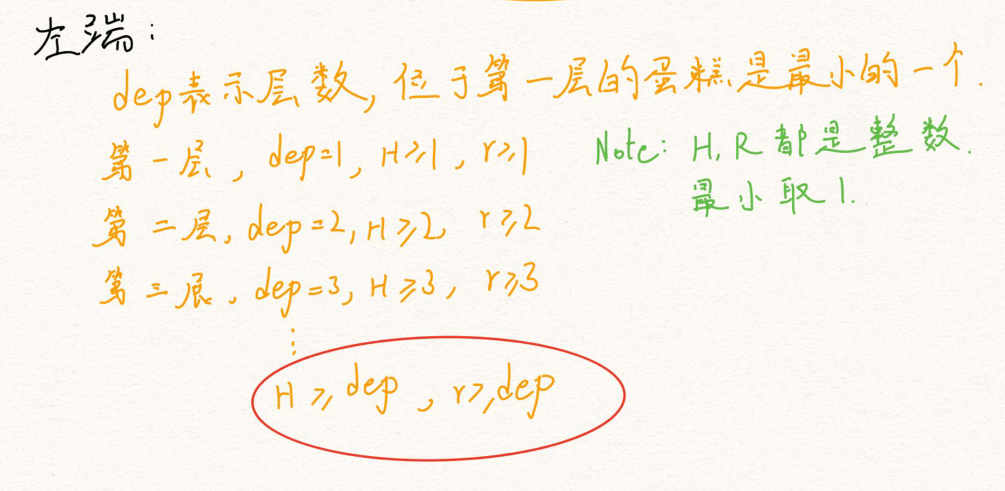 左端：
dep表示层数，位于第一层的蛋糕是最小的一个.
第一层，dep=1，H≥1，r≥1
Note: H, R 都是整数.
最小取1.
第二层，dep=2，H≥2，r≥2
第三层，dep=3，H≥3，r≥3
⋮
H≥dep，r≥dep